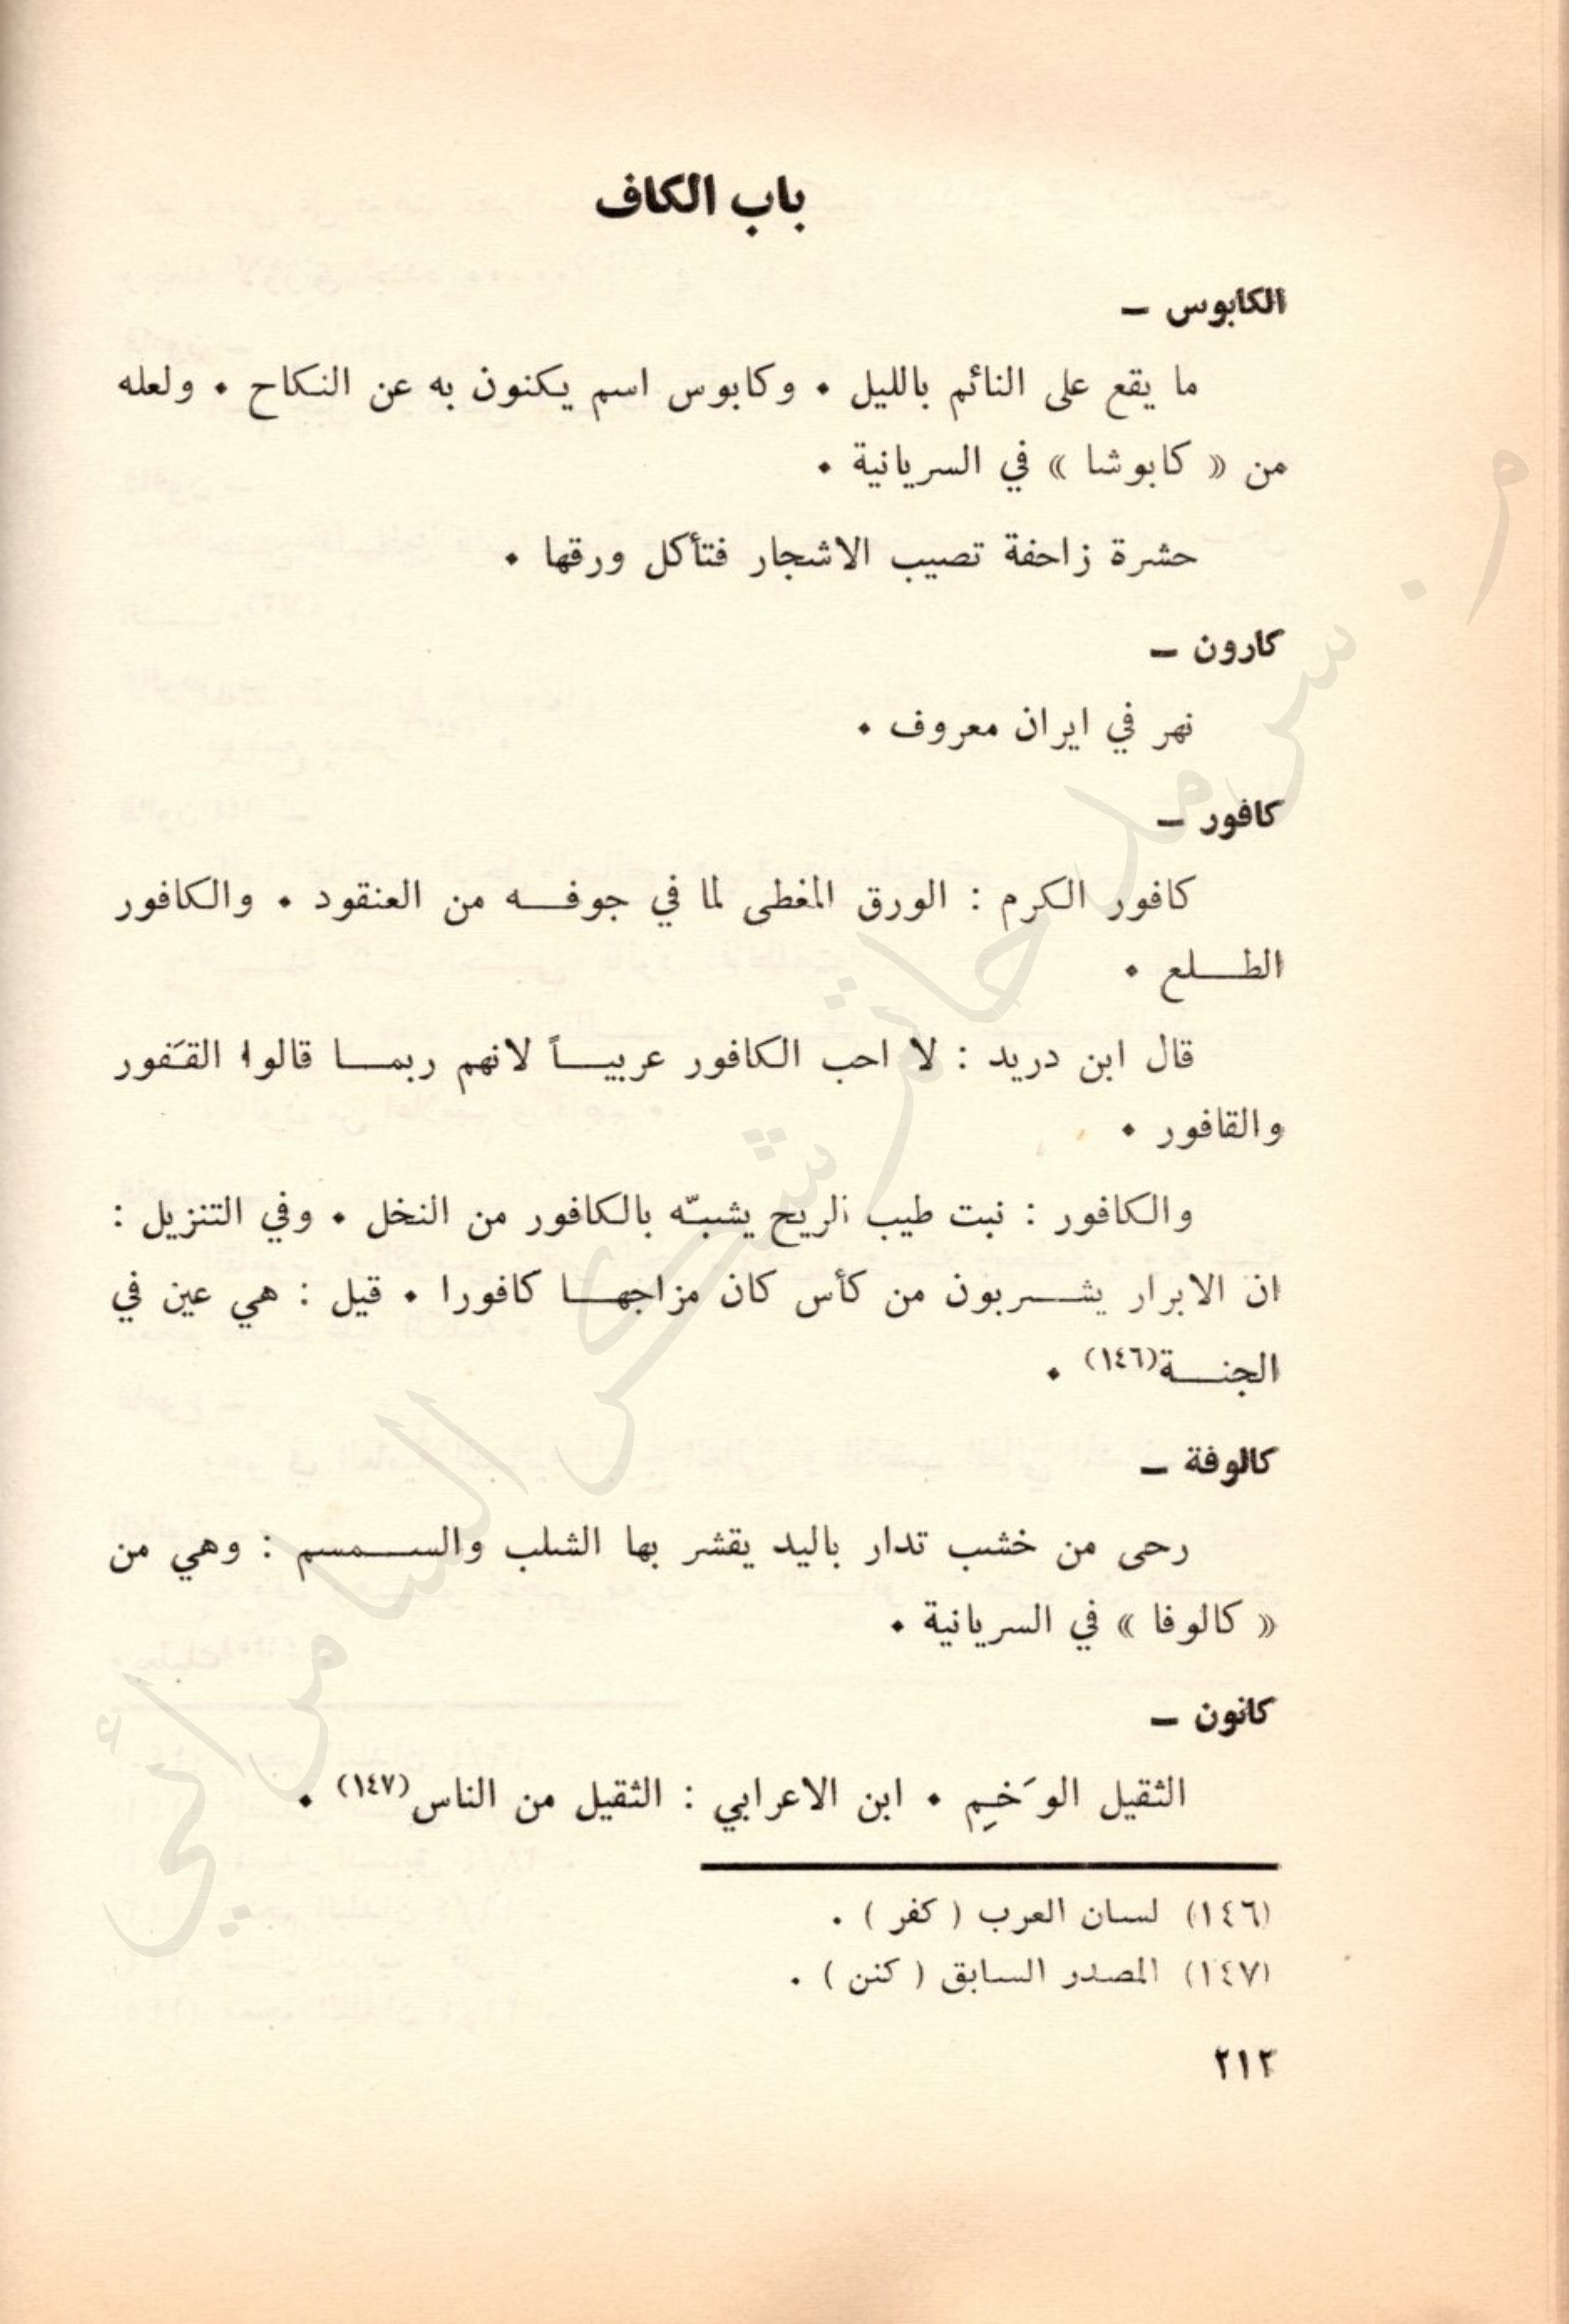 باب الكاف
الكابوس –
ما يقع على النائم بالليل • وكابوس اسم يكنون به عن النكاح • ولعله
من « كابوشا » في السريانية •
حشرة زاحفة تصيب الاشجار فتأكل ورقها •
كارون –
نهر في ايران معروف •
كافور –
كافور الكرم : الورق المغطى لما في جوفه من العنقود • والكافور
الطلع •
قال ابن دريد : لا احب الكافور عربياً لانهم ربما قالوا القَفور
والقافور •
والكافور : نبت طيب الريح يشبّه بالكافور من النخل • وفي التنزيل :
ان الابرار يشربون من كأس كان مزاجها كافورا • قيل : هي عين في
الجنة(١٤٦) •
كالوفة –
رحى من خشب تدار باليد يقشر بها الشلب والسمسم : وهي من
« كالوفا » في السريانية •
كانون –
الثقيل الوَخِم • ابن الاعرابي : الثقيل من الناس(١٤٧) •
(١٤٦) لسان العرب ( كفر ) .
(١٤٧) المصدر السابق ( كنن ) .
٢١٢
م. سرمد حاتم شكر السامرائي